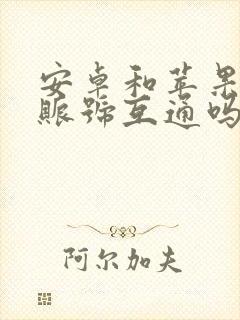 安卓和苹果
賬號互通吗
阿尔加夫